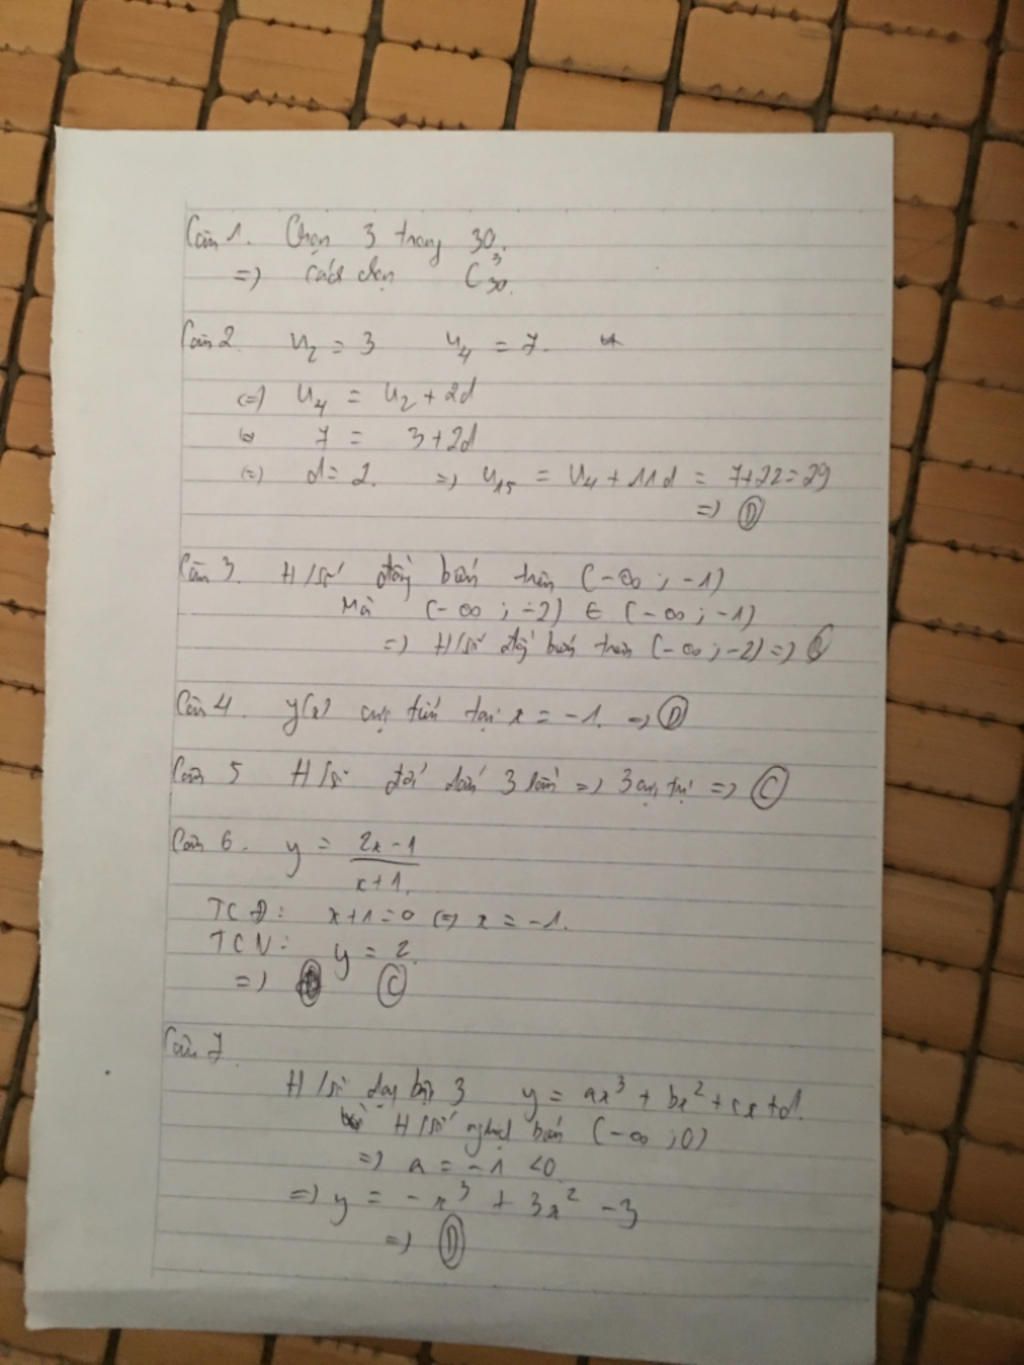 Câu 1. Chọn 3 trong 30.
=> cách chọn C³₃₀.
Câu 2. u₂ = 3 u₄ = 7.
<=> u₄ = u₂ + 2d
<=> 7 = 3 + 2d
<=> d = 2. => u₁₅ = u₄ + 11d = 7+22=29
=> D
Câu 3. H/số đồng biến trên (-∞; -1)
Mà (-∞; -2) ∈ (-∞; -1)
=> H/số đồng biến trên (-∞; -2) =>
Câu 4. y(x) cực tiểu tại x = -1. => D
Câu 5 H/số đổi dấu 3 lần => 3 cực trị => C
Câu 6. y = (2x - 1)/(x + 1).
TCĐ: x+1=0 <=> x = -1.
TCN: y = 2.
=> C
Câu 7
H/số dạng bậc 3 y = ax³ + bx² + cx + d.
H/số nghịch biến (-∞; 0)
=> a = -1 < 0
=> y = -x³ + 3x² - 3
=> D